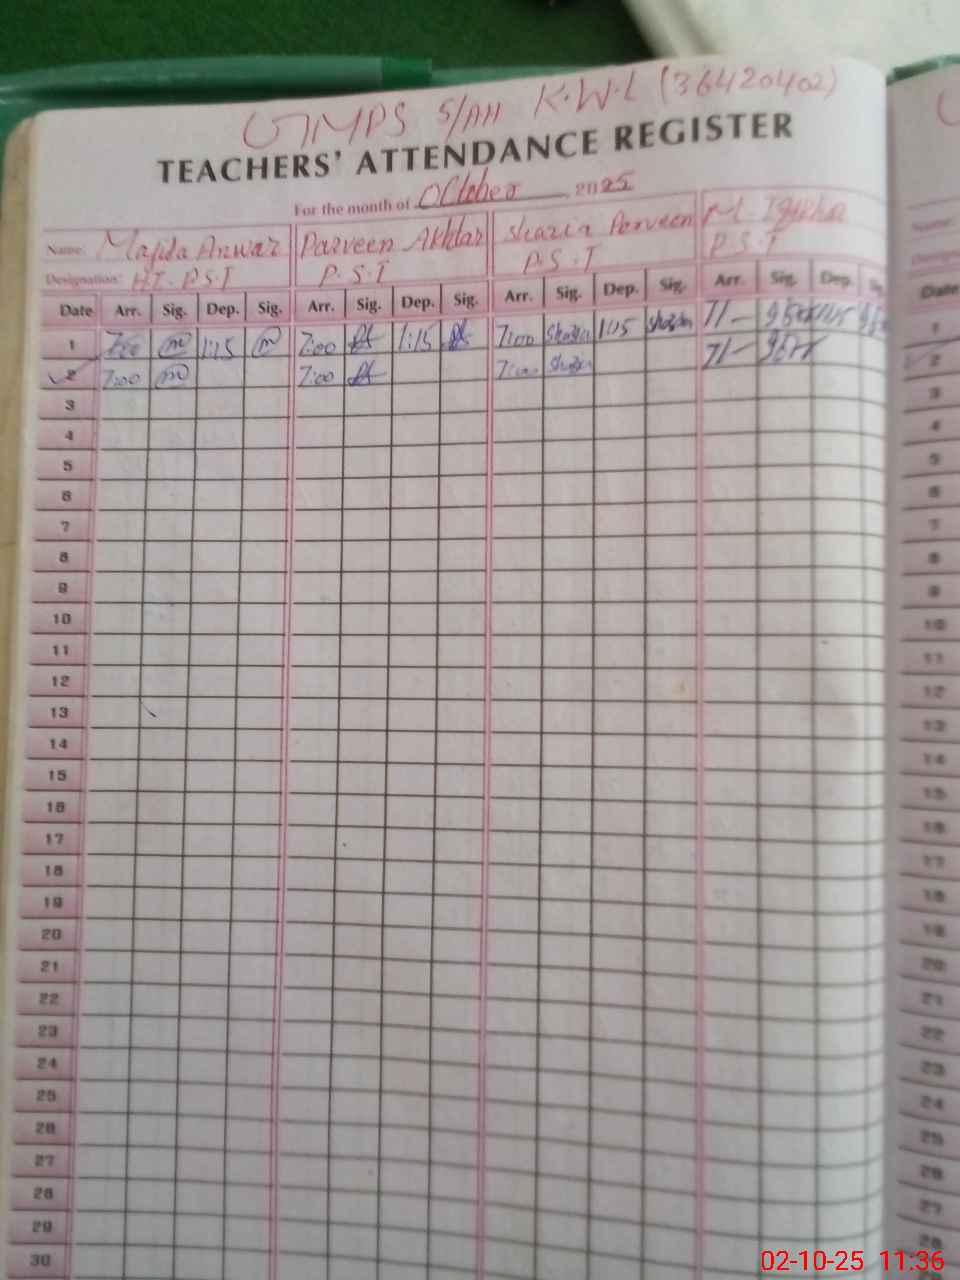 GMPS 5/AH K.W.L (36420402)
TEACHERS' ATTENDANCE REGISTER
For the month of October 2025
Name: Majida Anwar Parveen Akhtar Shazia Parveen M.
Designation: HT. P.S.T P.S.T P.S.T P.S.T
Date Arr. Sig. Dep. Sig. Arr. Sig. Dep. Sig. Arr. Sig. Dep. Sig. Arr. Sig. Dep.
1 7:00 m 1:15 m 7:00 1:15 7:00 Shazia 1:15 Shazia 7/-
2 7:00 m 7:00 7:00 Shazia 7/-
3
4
5
6
7
8
9
10
11
12
13
14
15
16
17
18
19
20
21
22
23
24
25
26
27
28
29
30
Name:
Date
1
2
3
4
5
6
7
8
9
10
11
12
13
14
15
16
17
18
19
20
21
22
23
24
25
26
27
28
02-10-25 11:36